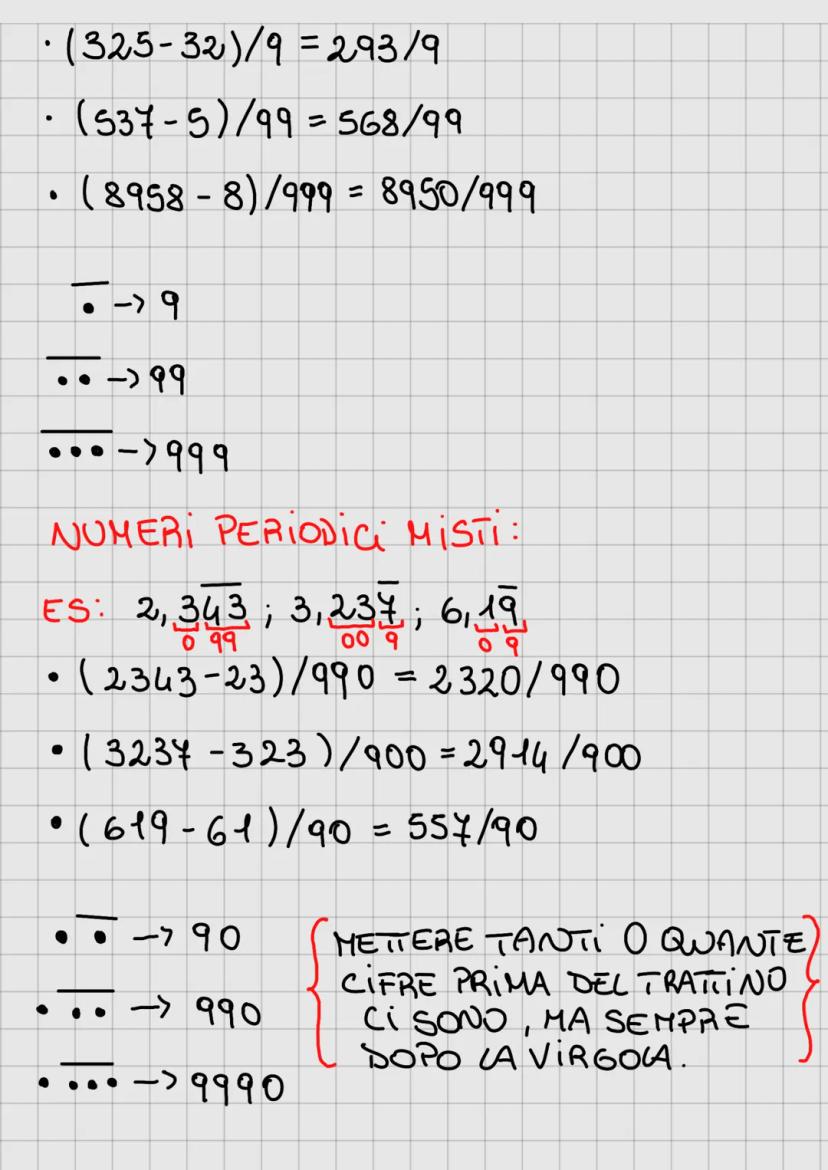 · (325-32)/9 = 293/9
· (537-5)/99 = 568/99
· (8958-8)/999 = 8950/999
•̅ -> 9
•̅•̅ -> 99
•̅•̅•̅ -> 999
NUMERI PERIODICI MISTI:
ES: 2,34̅3̅ ; 3,237̅ ; 6,19̅
0 99 00 9 0 9
• (2343-23)/990 = 2320/990
• (3237-323)/900 = 2914/900
• (619-61)/90 = 557/90
• •̅ -> 90
• •̅•̅ -> 990
• •̅•̅•̅ -> 9990
{METTERE TANTI 0 QUANTE
CIFRE PRIMA DEL TRATTINO
CI SONO, MA SEMPRE
DOPO LA VIRGOLA.}